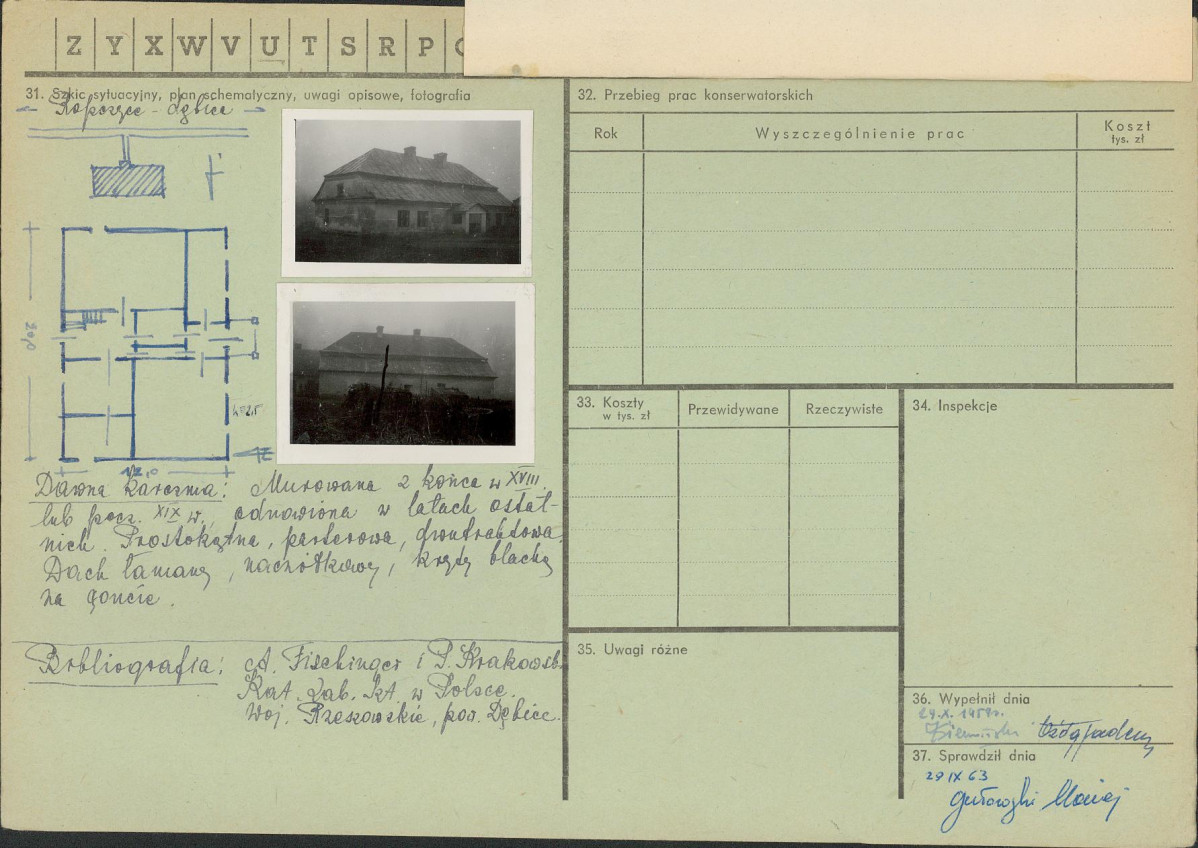 Z Y X W V U T S R P
31. Szkic sytuacyjny, plan schematyczny, uwagi opisowe, fotografia
Ropczyce - Dębica
20,0
h=2,5
12,0
Dawna karczma: Murowana z końca w XVIII
lub pocz. XIX w., odnowiona w latach ostat-
nich. Prostokątna, parterowa, dwutraktowa.
Dach łamany, naczółkowy, kryty blachą
na goncie.
Bibliografia: A. Fischinger i P. Krakowsk
Kat. Zab. Szt. w Polsce.
Woj. Rzeszowskie, pow. Dębice.
32. Przebieg prac konserwatorskich
Rok
Wyszczególnienie prac
Koszt
tys. zł
33. Koszty
w tys. zł
Przewidywane
Rzeczywiste
34. Inspekcje
35. Uwagi różne
36. Wypełnił dnia
29.X. 1959r.
37. Sprawdził dnia
29 IX 63
Maciej